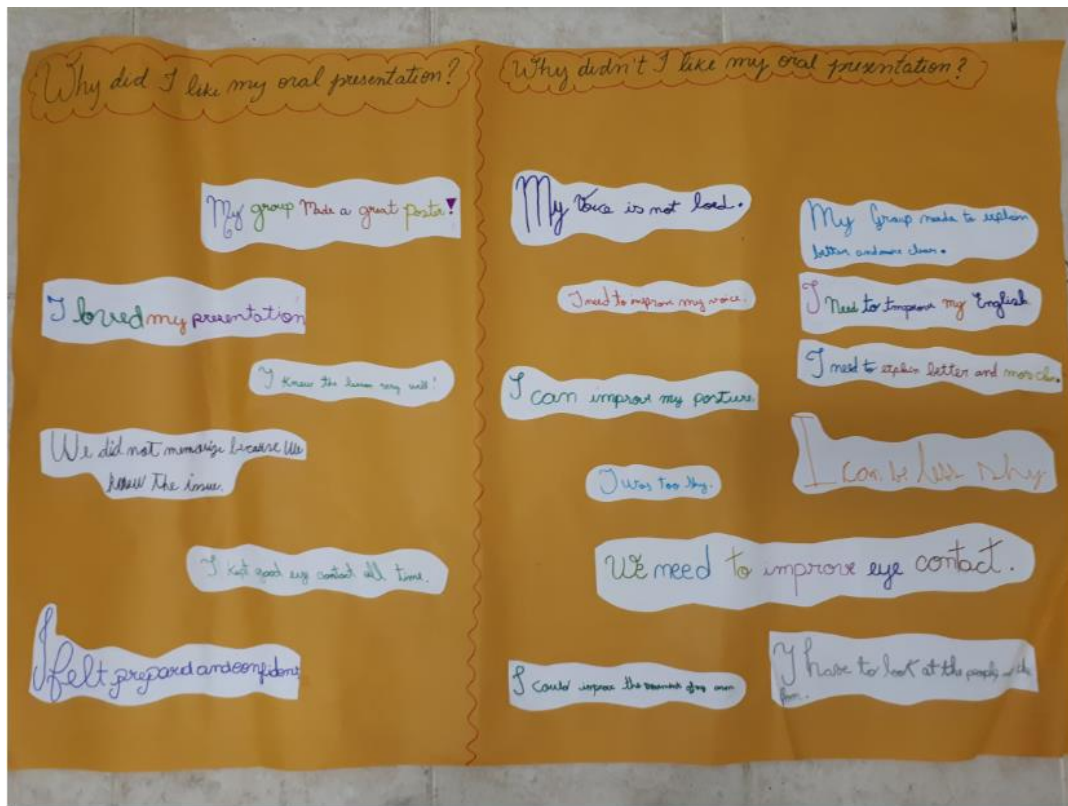 Why did I like my oral presentation?
My group Made a great poster!
I loved my presentation
I Knew the lesson very well!
We did not memorize because We
knew the issue.
I kept good eye contact all time.
I felt prepard and confident
Why didn't I like my oral presentation?
My Voice is not loud.
I need to improve my voice.
I can improve my posture.
I was too shy.
We need to improve eye contact.
I could improve the of my arm
My Group needs to explain
better and more clear.
I Need to Improve my English.
I need to explain better and more clear.
I can be less shy
I have to look at the people in the